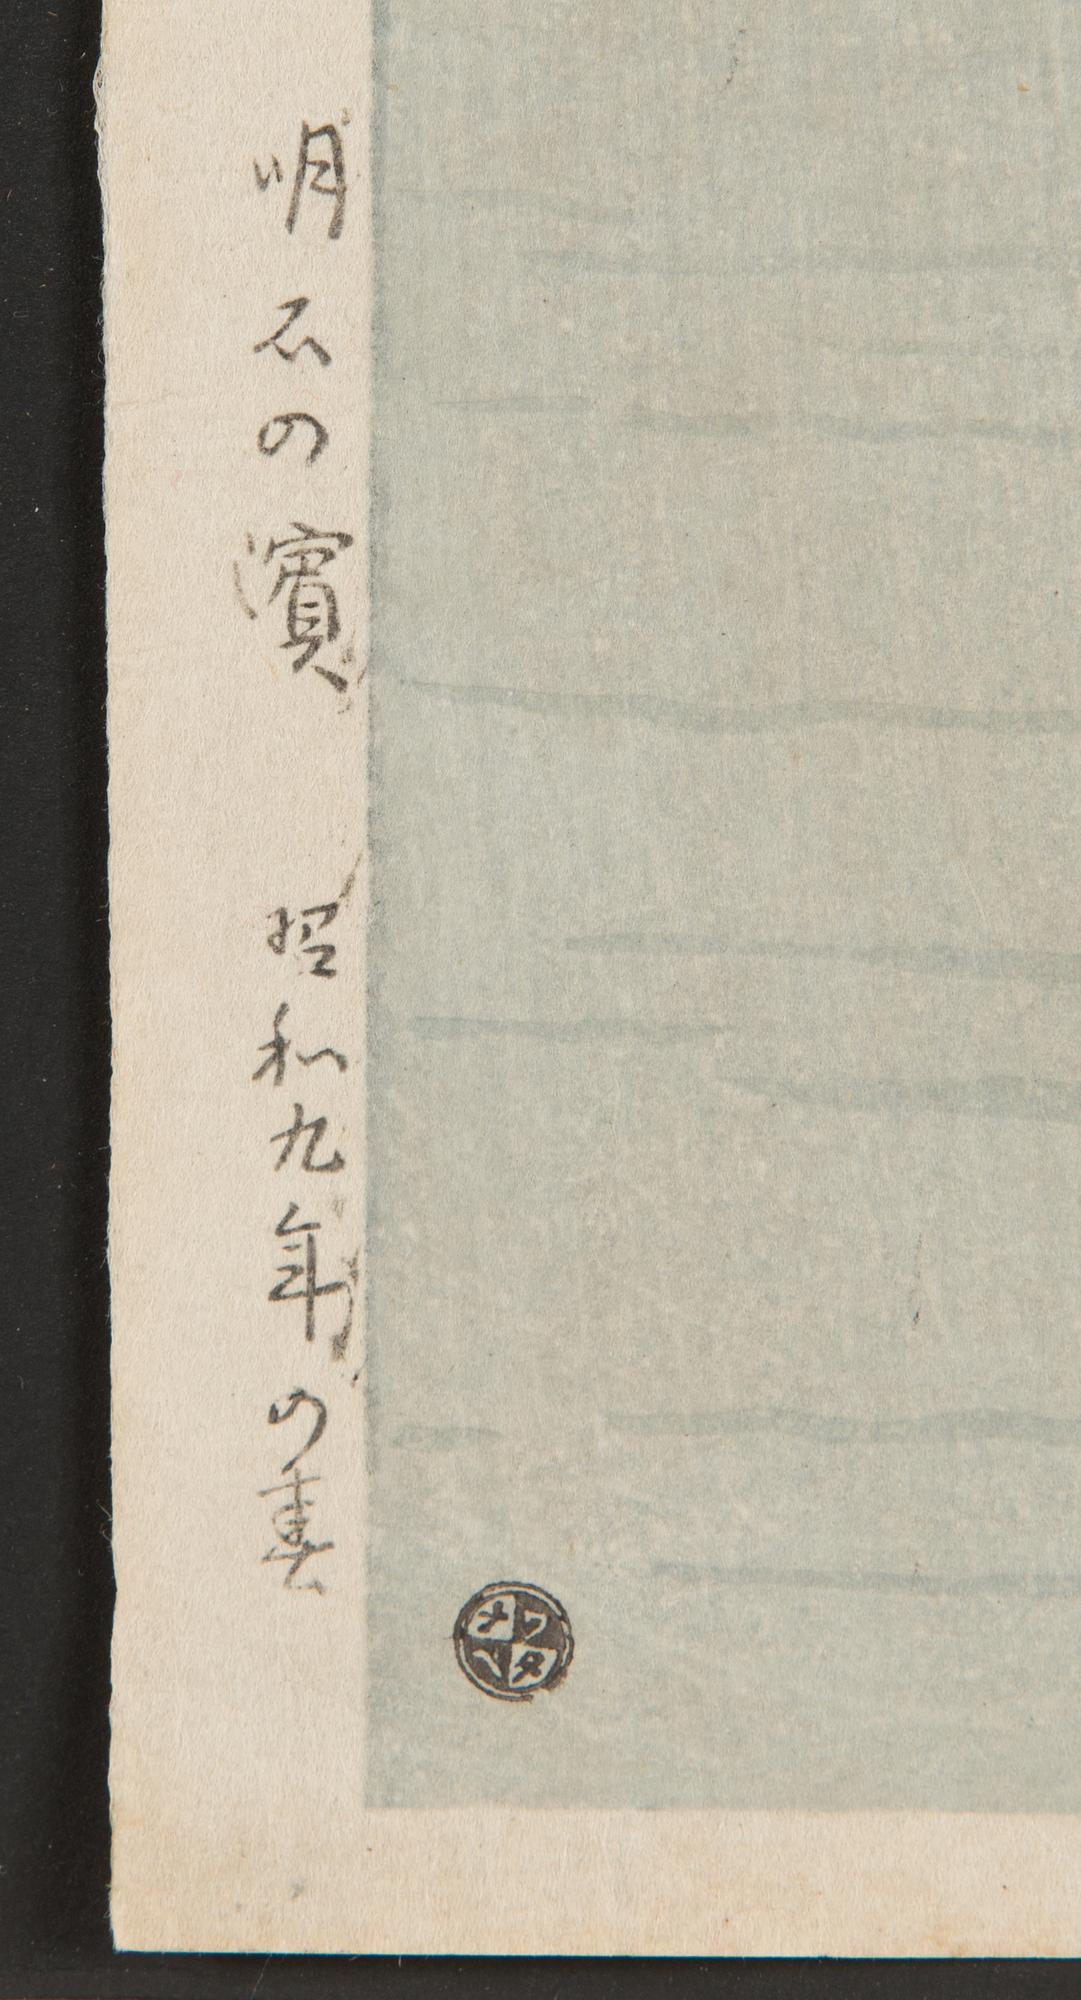 明石の濱 昭和九年の春
ワタナベ